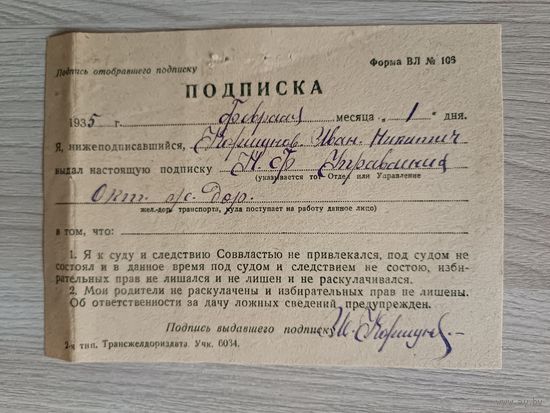 Подпись отобравшего подписку
Форма ВЛ № 103
ПОДПИСКА
1935 г. Февраля месяца „ 1 " дня.
Я, нижеподписавшийся, Коршунов Иван Никитич
выдал настоящую подписку Управления
(указывается тот Отдел или Управление
Окт. ж. дор.
жел.-дор. транспорта, куда поступает на работу данное лицо)
в том, что:
1. Я к суду и следствию Соввластью не привлекался, под судом не
состоял и в данное время под судом и следствием не состою, изби-
рательных прав не лишался и не лишен и не раскулачивался.
2. Мои родители не раскулачены и избирательных прав не лишены.
Об ответственности за дачу ложных сведений предупрежден.
Подпись выдавшего подписку И. Коршунов
2-я тип. Трансжелдориздата. Учк. 6034.